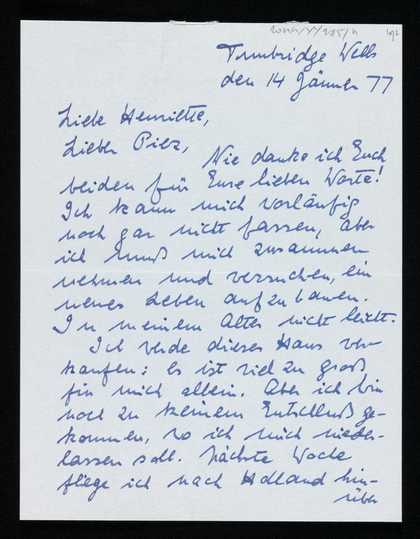 Tunbridge Wells
den 14 Jänner 77
Liebe Henriette,
Lieber Pilz,
Wie danke ich Euch
beiden für Eure lieben Worte!
Ich kann mich vorläufig
noch gar nicht fassen, aber
ich muß mich zusammen
nehmen und versuchen, ein
neues Leben aufzubauen.
In meinem Alter nicht leicht.
Ich werde dieses Haus ver-
kaufen: es ist viel zu groß
für mich allein. Aber ich bin
noch zu keinem Entschluß ge-
kommen, wo ich mich nieder-
lassen soll. Nächste Woche
fliege ich nach Holland hin-
über